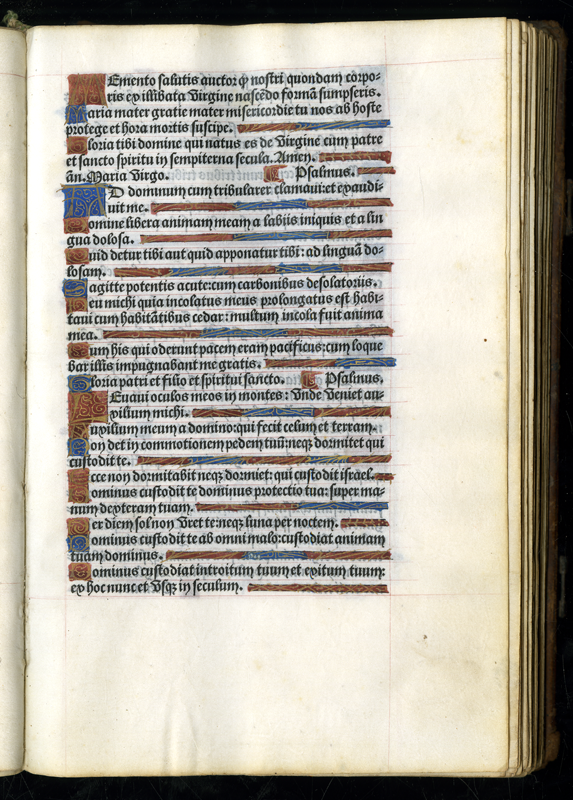 MEmento salutis auctor ꝙ nostri quondam corpo-
ris ex illibata virgine nascēdo formā sumpseris.
Maria mater gratie mater misericordie tu nos ab hoste
protege et hora mortis suscipe.
Gloria tibi domine qui natus es de virgine cum patre
et sancto spiritu in sempiterna secula. Amen.
añ. Maria virgo. Psalmus.
AD dominum cum tribularer clamaui: et exaudi-
uit me.
Domine libera animam meam a labijs iniquis et a lin
gua dolosa.
Quid detur tibi aut quid apponatur tibi: ad linguā do-
losam.
Sagitte potentis acute: cum carbonibus desolatorijs.
Heu michi quia incolatus meus prolongatus est habi-
taui cum habitātibus cedar: multum incola fuit anima
mea.
Cum his qui oderunt pacem eram pacificus: cum loque
bar illis impugnabant me gratis.
Gloria patri et filio et spiritui sancto. Psalmus.
LEuaui oculos meos in montes: vnde veniet au-
xilium michi.
Auxilium meum a domino: qui fecit celum et terram.
Non det in commotionem pedem tuū: neqꝫ dormitet qui
custodit te.
Ecce non dormitabit neqꝫ dormiet: qui custodit israel.
Dominus custodit te dominus protectio tua: super ma-
num dexteram tuam.
Per diem sol non vret te: neqꝫ luna per noctem.
Dominus custodit te ab omni malo: custodiat animam
tuam dominus.
Dominus custodiat introitum tuum et exitum tuum:
ex hoc nunc et vsqꝫ in seculum.